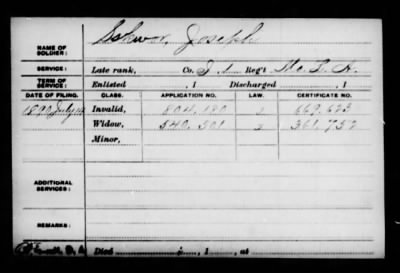 NAME OF SOLDIER: Schwor, Joseph
SERVICE: Late rank, Co. Reg't Mo. L. A.
TERM OF SERVICE: Enlisted , 1 Discharged , 1
DATE OF FILING. CLASS. APPLICATION NO. LAW. CERTIFICATE NO.
1890 July Invalid, 804,190
Widow, 540,501 361,752
Minor,
ADDITIONAL SERVICES:
REMARKS:
Died , 1 , at